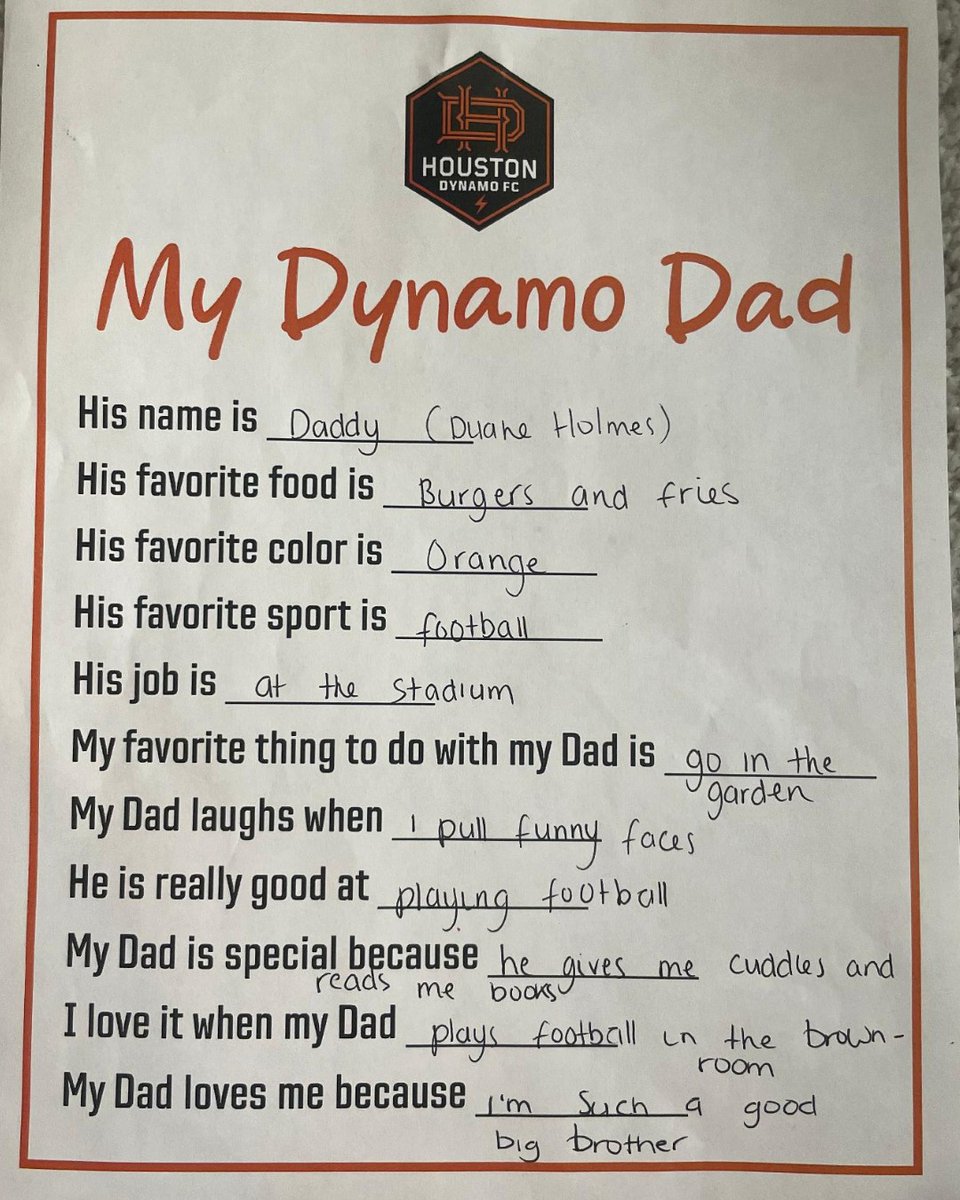 HOUSTON
DYNAMO FC
My Dynamo Dad
His name is Daddy (Duane Holmes)
His favorite food is Burgers and fries
His favorite color is Orange
His favorite sport is football
His job is at the stadium
My favorite thing to do with my Dad is go in the
garden
My Dad laughs when I pull funny faces
He is really good at playing football
My Dad is special because he gives me cuddles and
reads me books
I love it when my Dad plays football in the brown-
room
My Dad loves me because I'm such a good
big brother